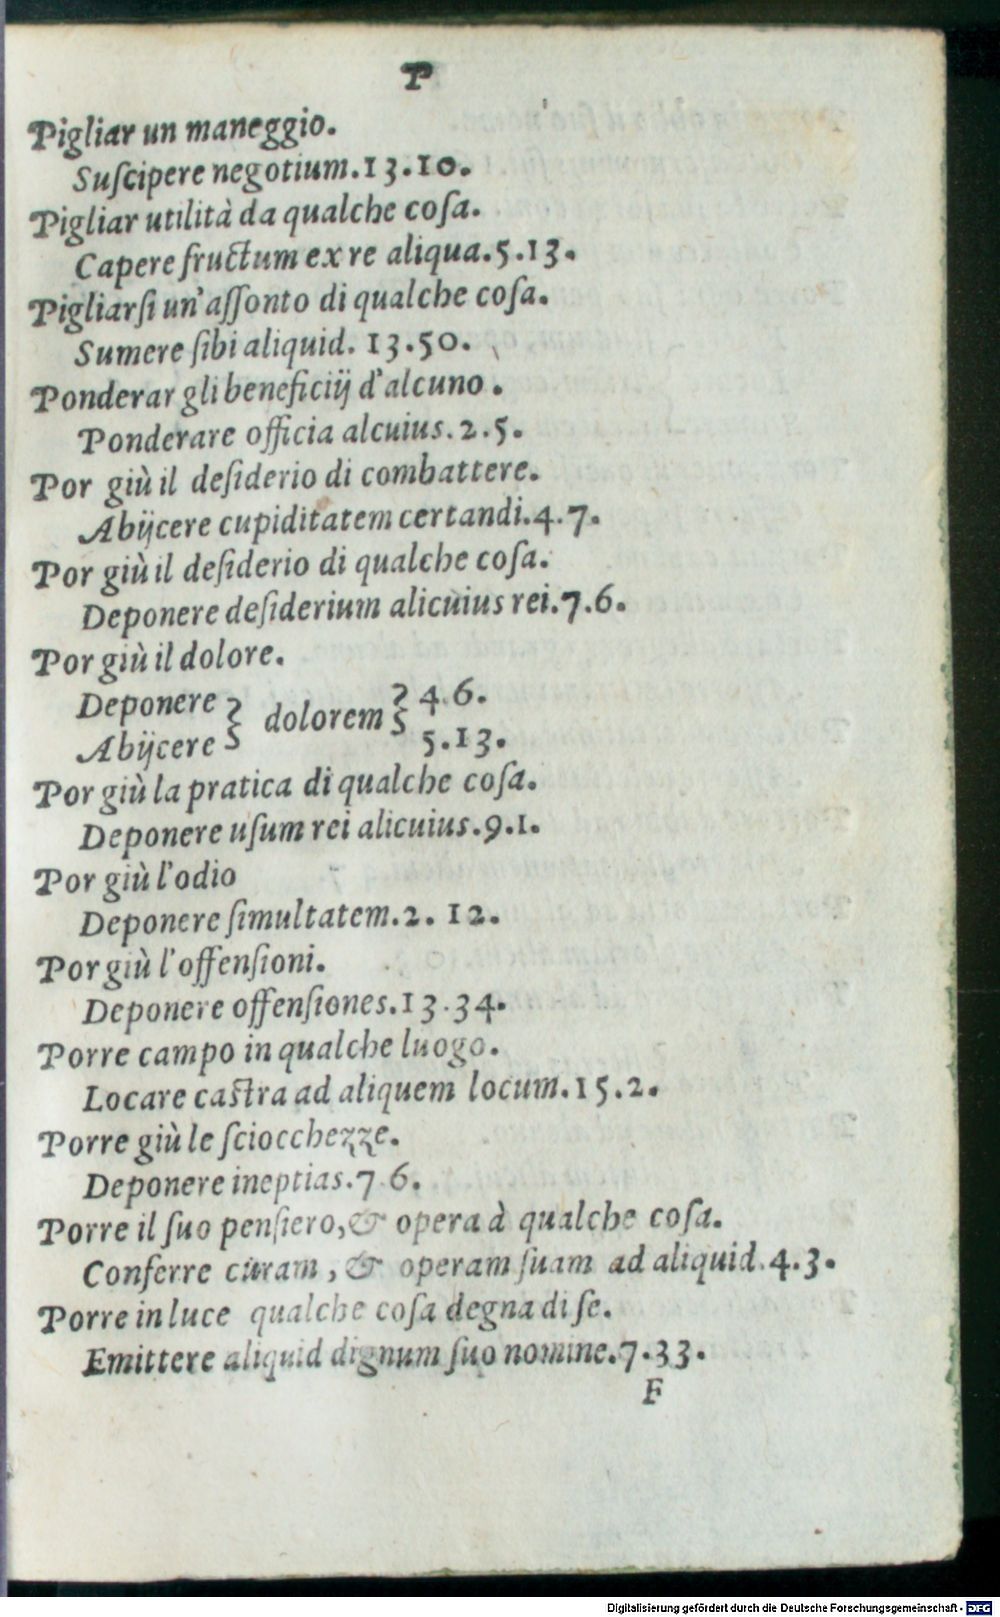 P
Pigliar un maneggio.
Suſcipere negotium.13.10.
Pigliar utilità da qualche coſa.
Capere fructum ex re aliqua.5.13.
Pigliarſi un'aſſonto di qualche coſa.
Sumere ſibi aliquid. 13.50.
Ponderar gli beneficiĳ d'alcuno.
Ponderare officia alcuius.2.5.
Por giù il deſiderio di combattere.
Abĳcere cupiditatem certandi.4.7.
Por giù il deſiderio di qualche coſa.
Deponere deſiderium alicuius rei.7.6.
Por giù il dolore.
Deponere } dolorem } 4.6.
Abĳcere } 5.13.
Por giù la pratica di qualche coſa.
Deponere uſum rei alicuius.9.1.
Por giù l'odio
Deponere ſimultatem.2. 12.
Por giù l'offenſioni.
Deponere offenſiones.13.34.
Porre campo in qualche luogo.
Locare caſtra ad aliquem locum.15.2.
Porre giù le ſciocchezze.
Deponere ineptias.7.6.
Porre il ſuo penſiero,& opera à qualche coſa.
Conferre curam, & operam ſuam ad aliquid.4.3.
Porre in luce qualche coſa degna di ſe.
Emittere aliquid dignum ſuo nomine.7.33.
F
Digitalisierung gefördert durch die Deutsche Forschungsgemeinschaft - DFG